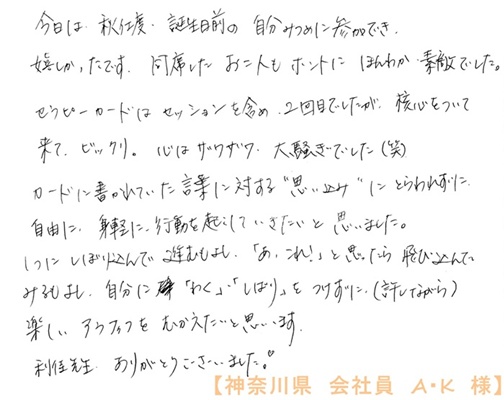 今日は、秋仕度・誕生日前の 自分みつめに参加でき、
嬉しかったです。 同席した お二人も ホントに ほんわか 素敵でした。
セラピーカードは セッションを含め、2回目でしたが、核心をついて
来て、ビックリ。 心は ザワザワ、大騒ぎでした(笑)
カードに書かれていた言葉に対する "思い込み" に とらわれずに、
自由に、身軽に、行動を起こしていきたいと 思いました。
1つに しぼり込んで 進むもよし、「あ、これ!」と思ったら 飛び込んで
みるもよし、自分に 「わく」・「しばり」を つけずに、(許しながら)
楽しい アラフィフを むかえたいと思います。
利佳先生、ありがとうございました。
【神奈川県 会社員 A・K 様】